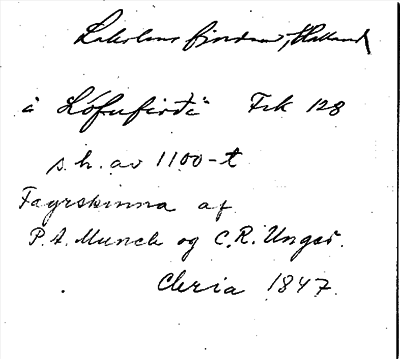 Laholms fjärden, Halland
á Lófufirði" Fsk 128
s.h. av 1100-t
Fagrskinna af
P. A. Munch og C. R. Unger.
Cleria 1847.